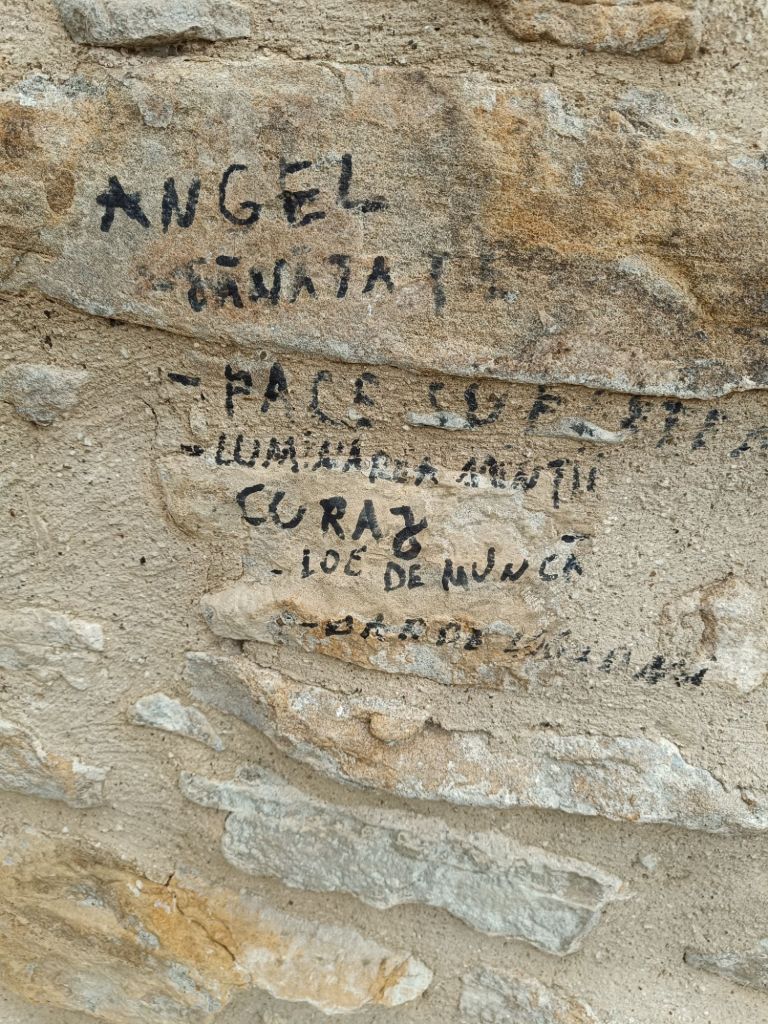 ANGEL
- SĂNĂTATE
- PACE CU
- LUMINAREA MINȚII
CURAJ
- LOC DE MUNCĂ
- DAR DE